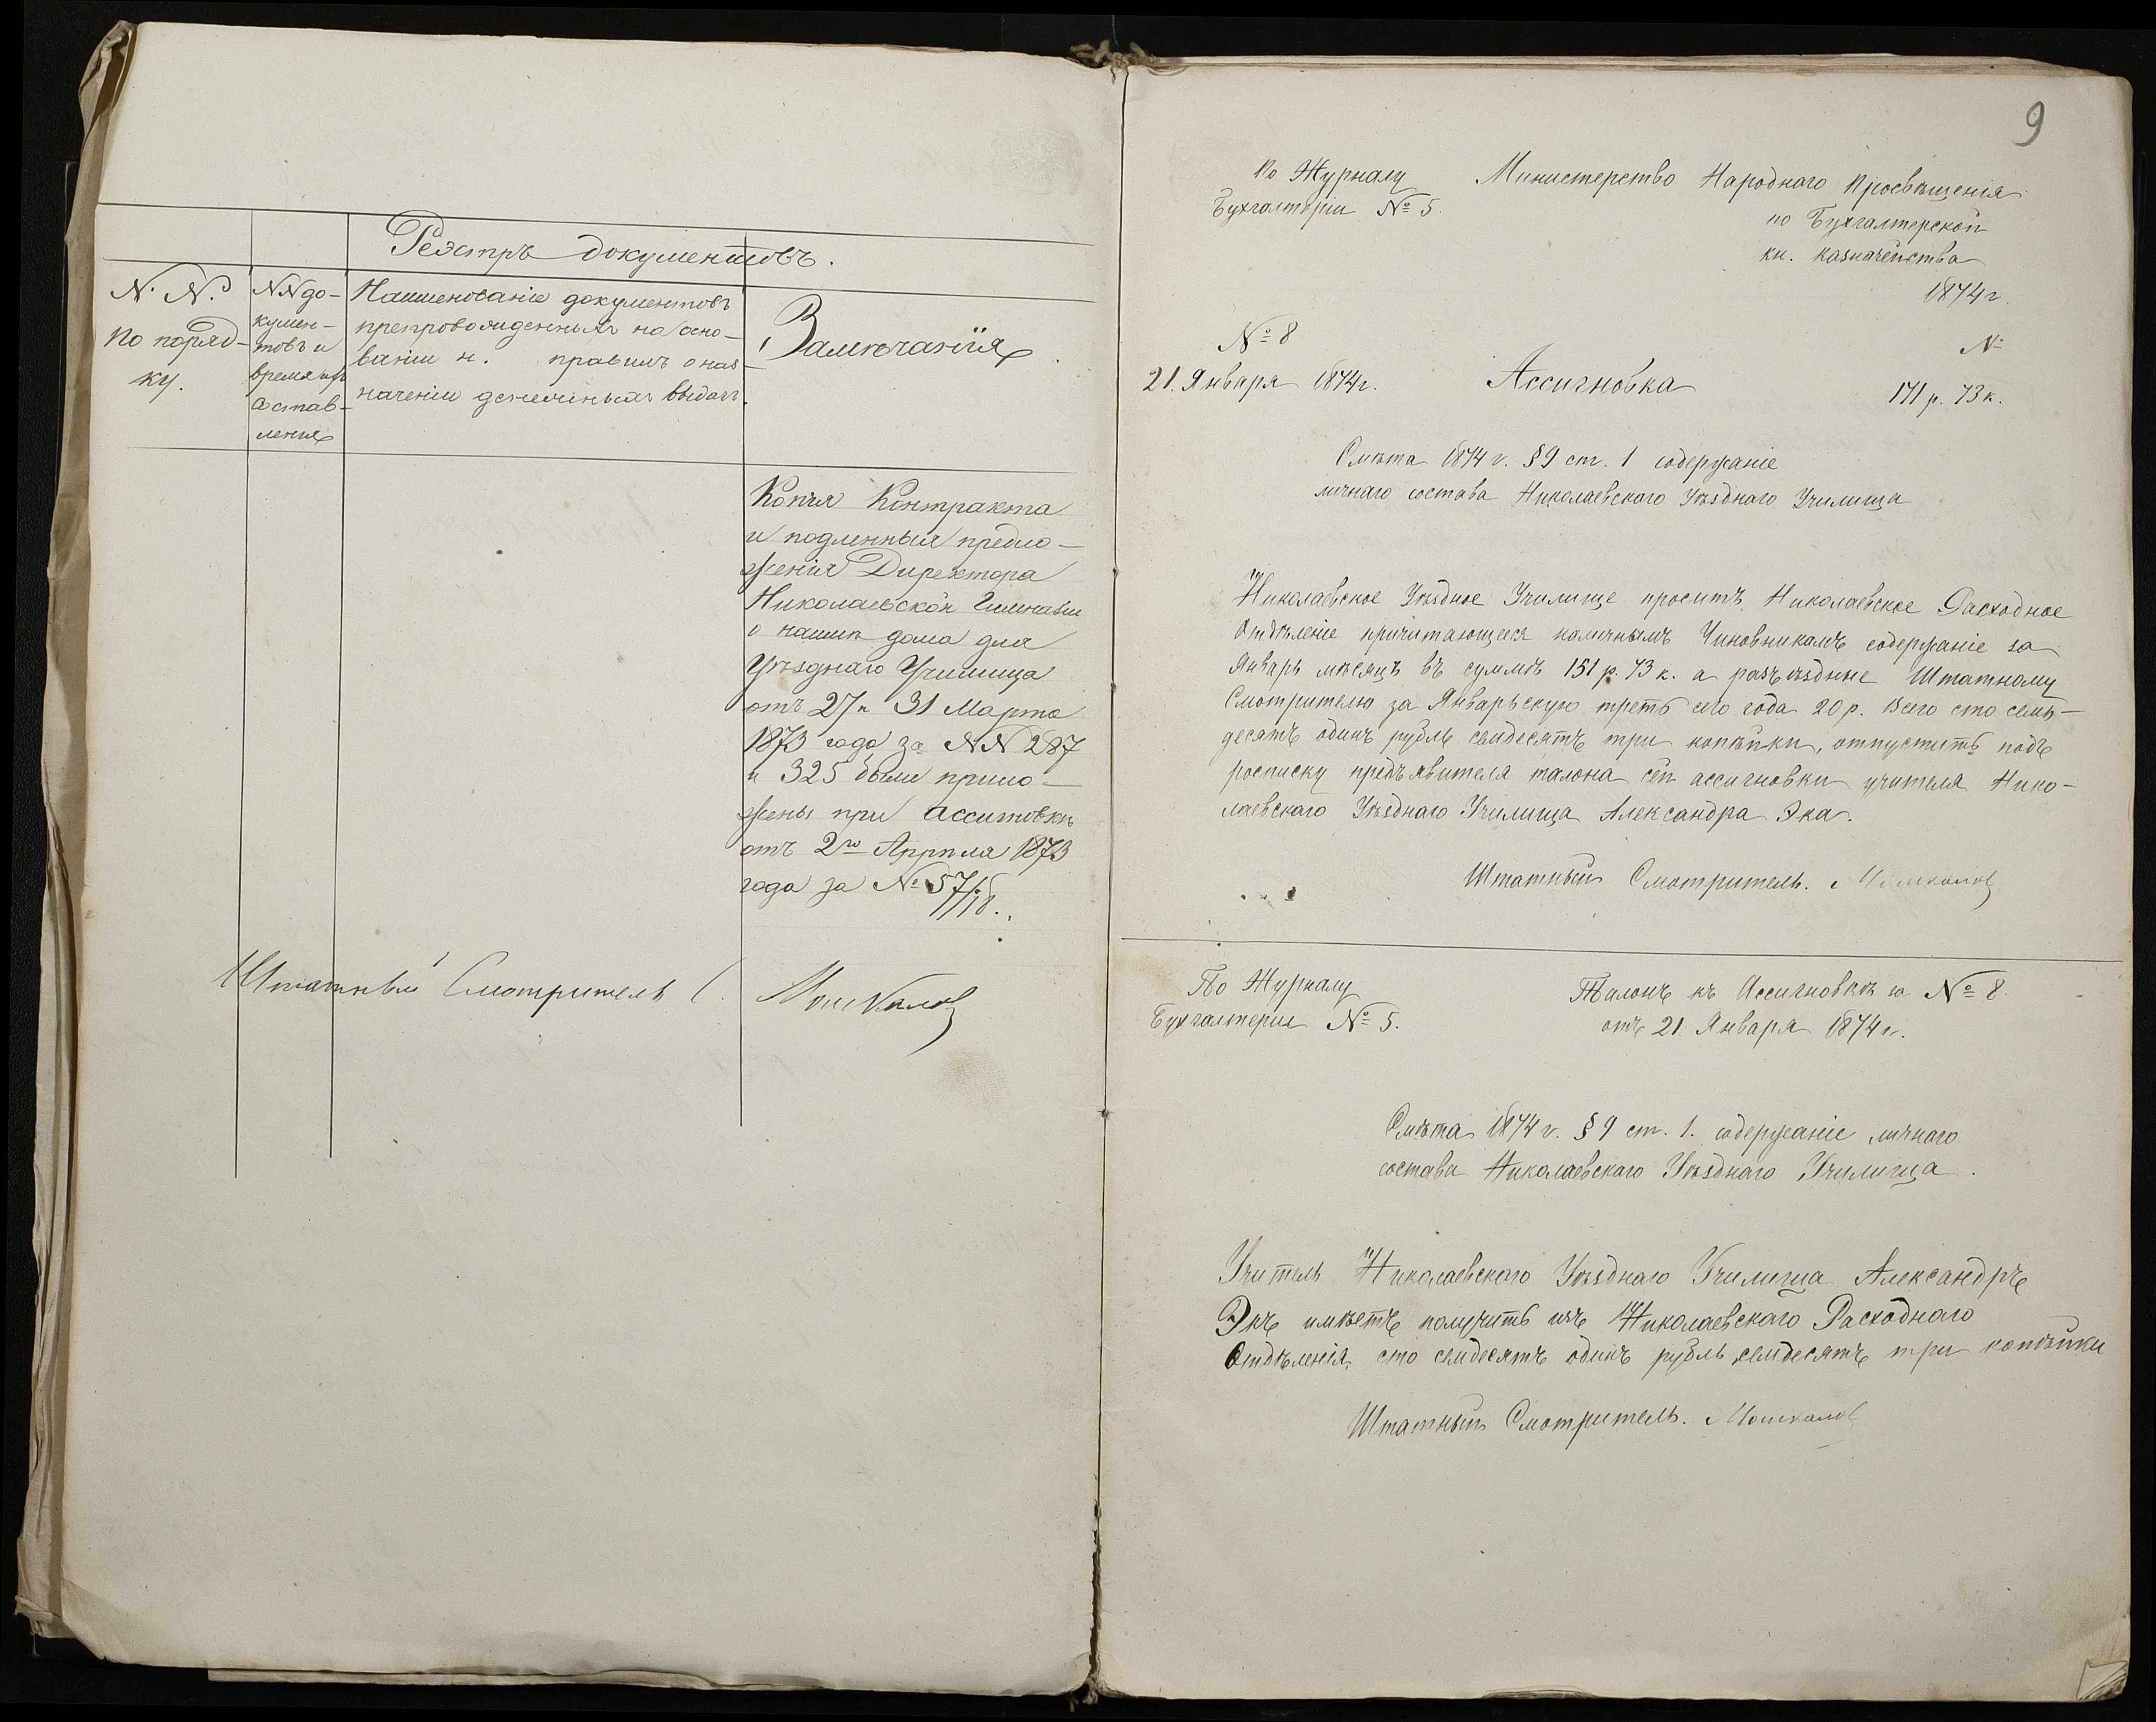 Реэстръ документовъ.
N. N.
по поряд-
ку.
NN до-
кумен-
товъ и
время ихъ
состав-
ленія
Наименованіе документовъ
препровожденныхъ на осно-
ваніи н. правилъ о наз-
наченіи денежныхъ выдачъ.
Замѣчанія.
Копія Контракта
и подленныя предло-
женія Директора
Николаевской Гимназіи
о наймѣ дома для
Уѣзднаго Училища
отъ 27 и 31 Марта
1873 года за NN 287
и 325 были прило-
жены при ассигновкѣ
отъ 2го Апрѣля 1873
года за № 57/18.
Штатный Смотритель
9
По Журналу
Бухгалтеріи № 5.
Министерство Народнаго Просвѣщенія
по Бухгалтерской
кн. казначейства
1874 г.
№
№ 8
21. Января 1874 г.
Ассигновка
171 р. 73 к.
Смѣта 1874 г. § 9 ст. 1 содержаніе
личнаго состава Николаевскаго Уѣзднаго Училища
Николаевское Уѣздное Училище проситъ Николаевское Расходное
Отдѣленіе причитающееся наличнымъ Чиновникамъ содержаніе за
Январь мѣсяцъ въ суммѣ 151 р. 73 к. а разъѣздные Штатному
Смотрителю за Январьскую треть сего года 20 р. Всего сто семь-
десятъ одинъ рубль семдесятъ три копѣйки, отпустить подъ
росписку предъявителя талона сей ассигновки учителя Нико-
лаевскаго Уѣзднаго Училища Александра Эка.
Штатный Смотритель.
По Журналу
Бухгалтеріи № 5.
Талонъ къ Ассигновкѣ за № 8.
отъ 21. Января 1874 г.
Смѣта 1874 г. § 9 ст. 1. содержаніе личнаго
состава Николаевскаго Уѣзднаго Училища.
Учитель Николаевскаго Уѣзднаго Училища Александръ
Экъ имѣетъ получить изъ Николаевскаго Расходнаго
Отдѣленія, сто семдесятъ одинъ рубль семдесятъ три копѣйки
Штатный Смотритель.